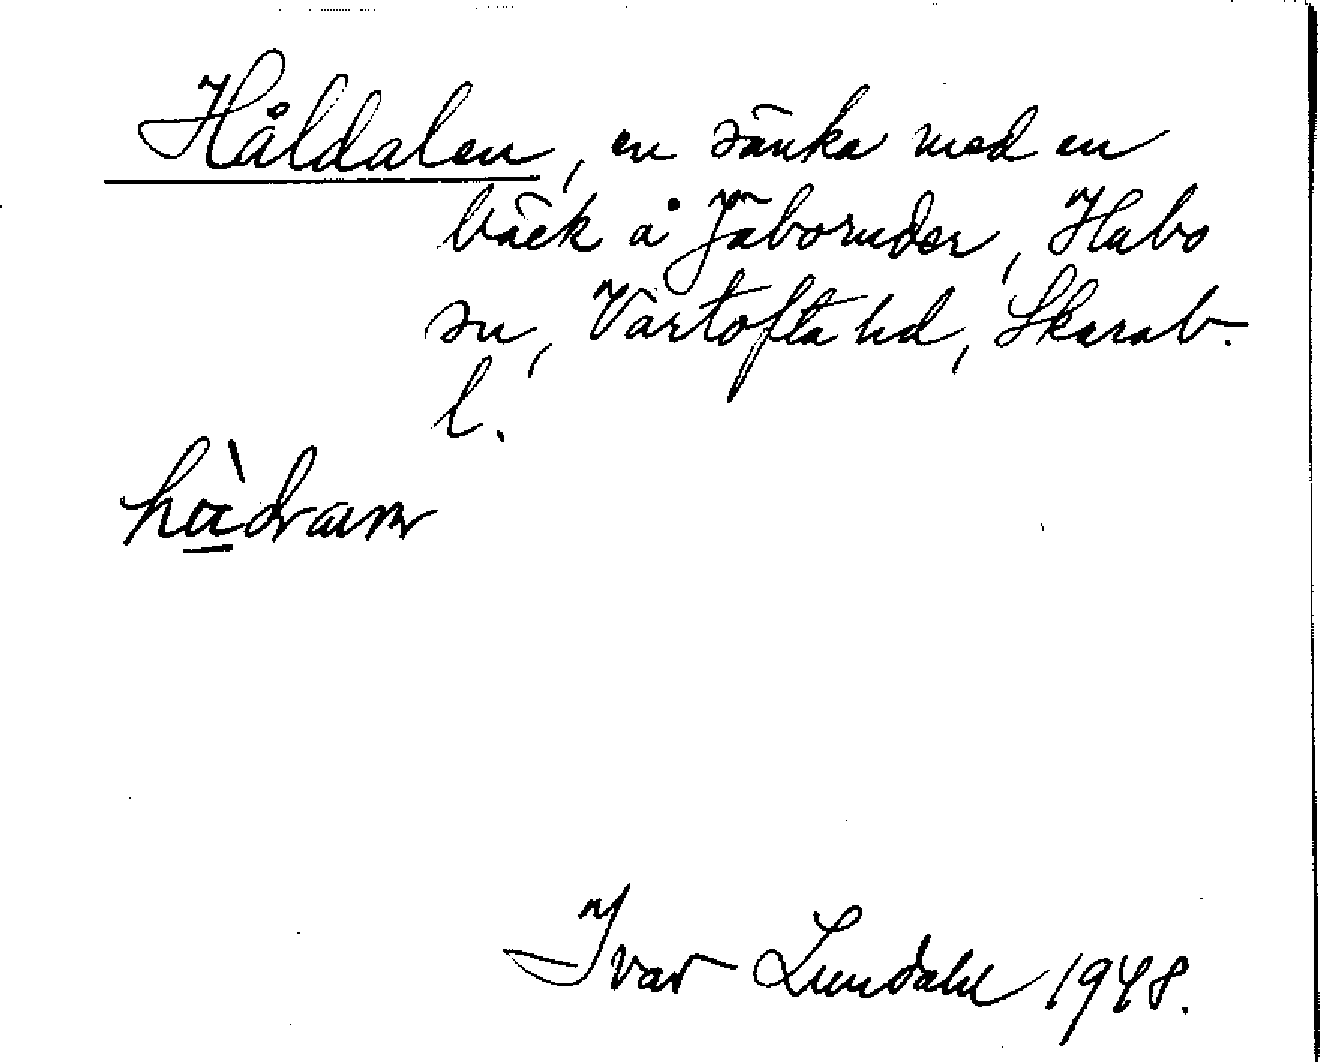 Håldalen, en sänka med en
bäck å Jäboruder, Habo
sn, Vartofta hd, Skarab.
l.
Ivar Lundahl 1948.